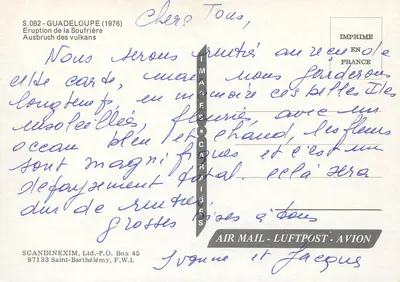 S.082 - GUADELOUPE (1976)
Eruption de la Soufrière
Ausbruch des vulkans
IMPRIME
EN
FRANCE
Chers Tous,
Nous serons rentrés au reçu de
cette carte, mais nous garderons
longtemps, en mémoire ces belles Iles
ensoleillées, fleuries, avec un
océan bleu et chaud, les fleurs
sont magnifiques et c'est un
dépaysement total. cela sera
dur de rentrer
grosses bises à tous
Yvonne et Jacques
IMAGES CREOLES
AIR MAIL - LUFTPOST - AVION
SCANDINEXIM, Ltd.-P.O. Box 45
97133 Saint-Barthélemy, F.W.I.